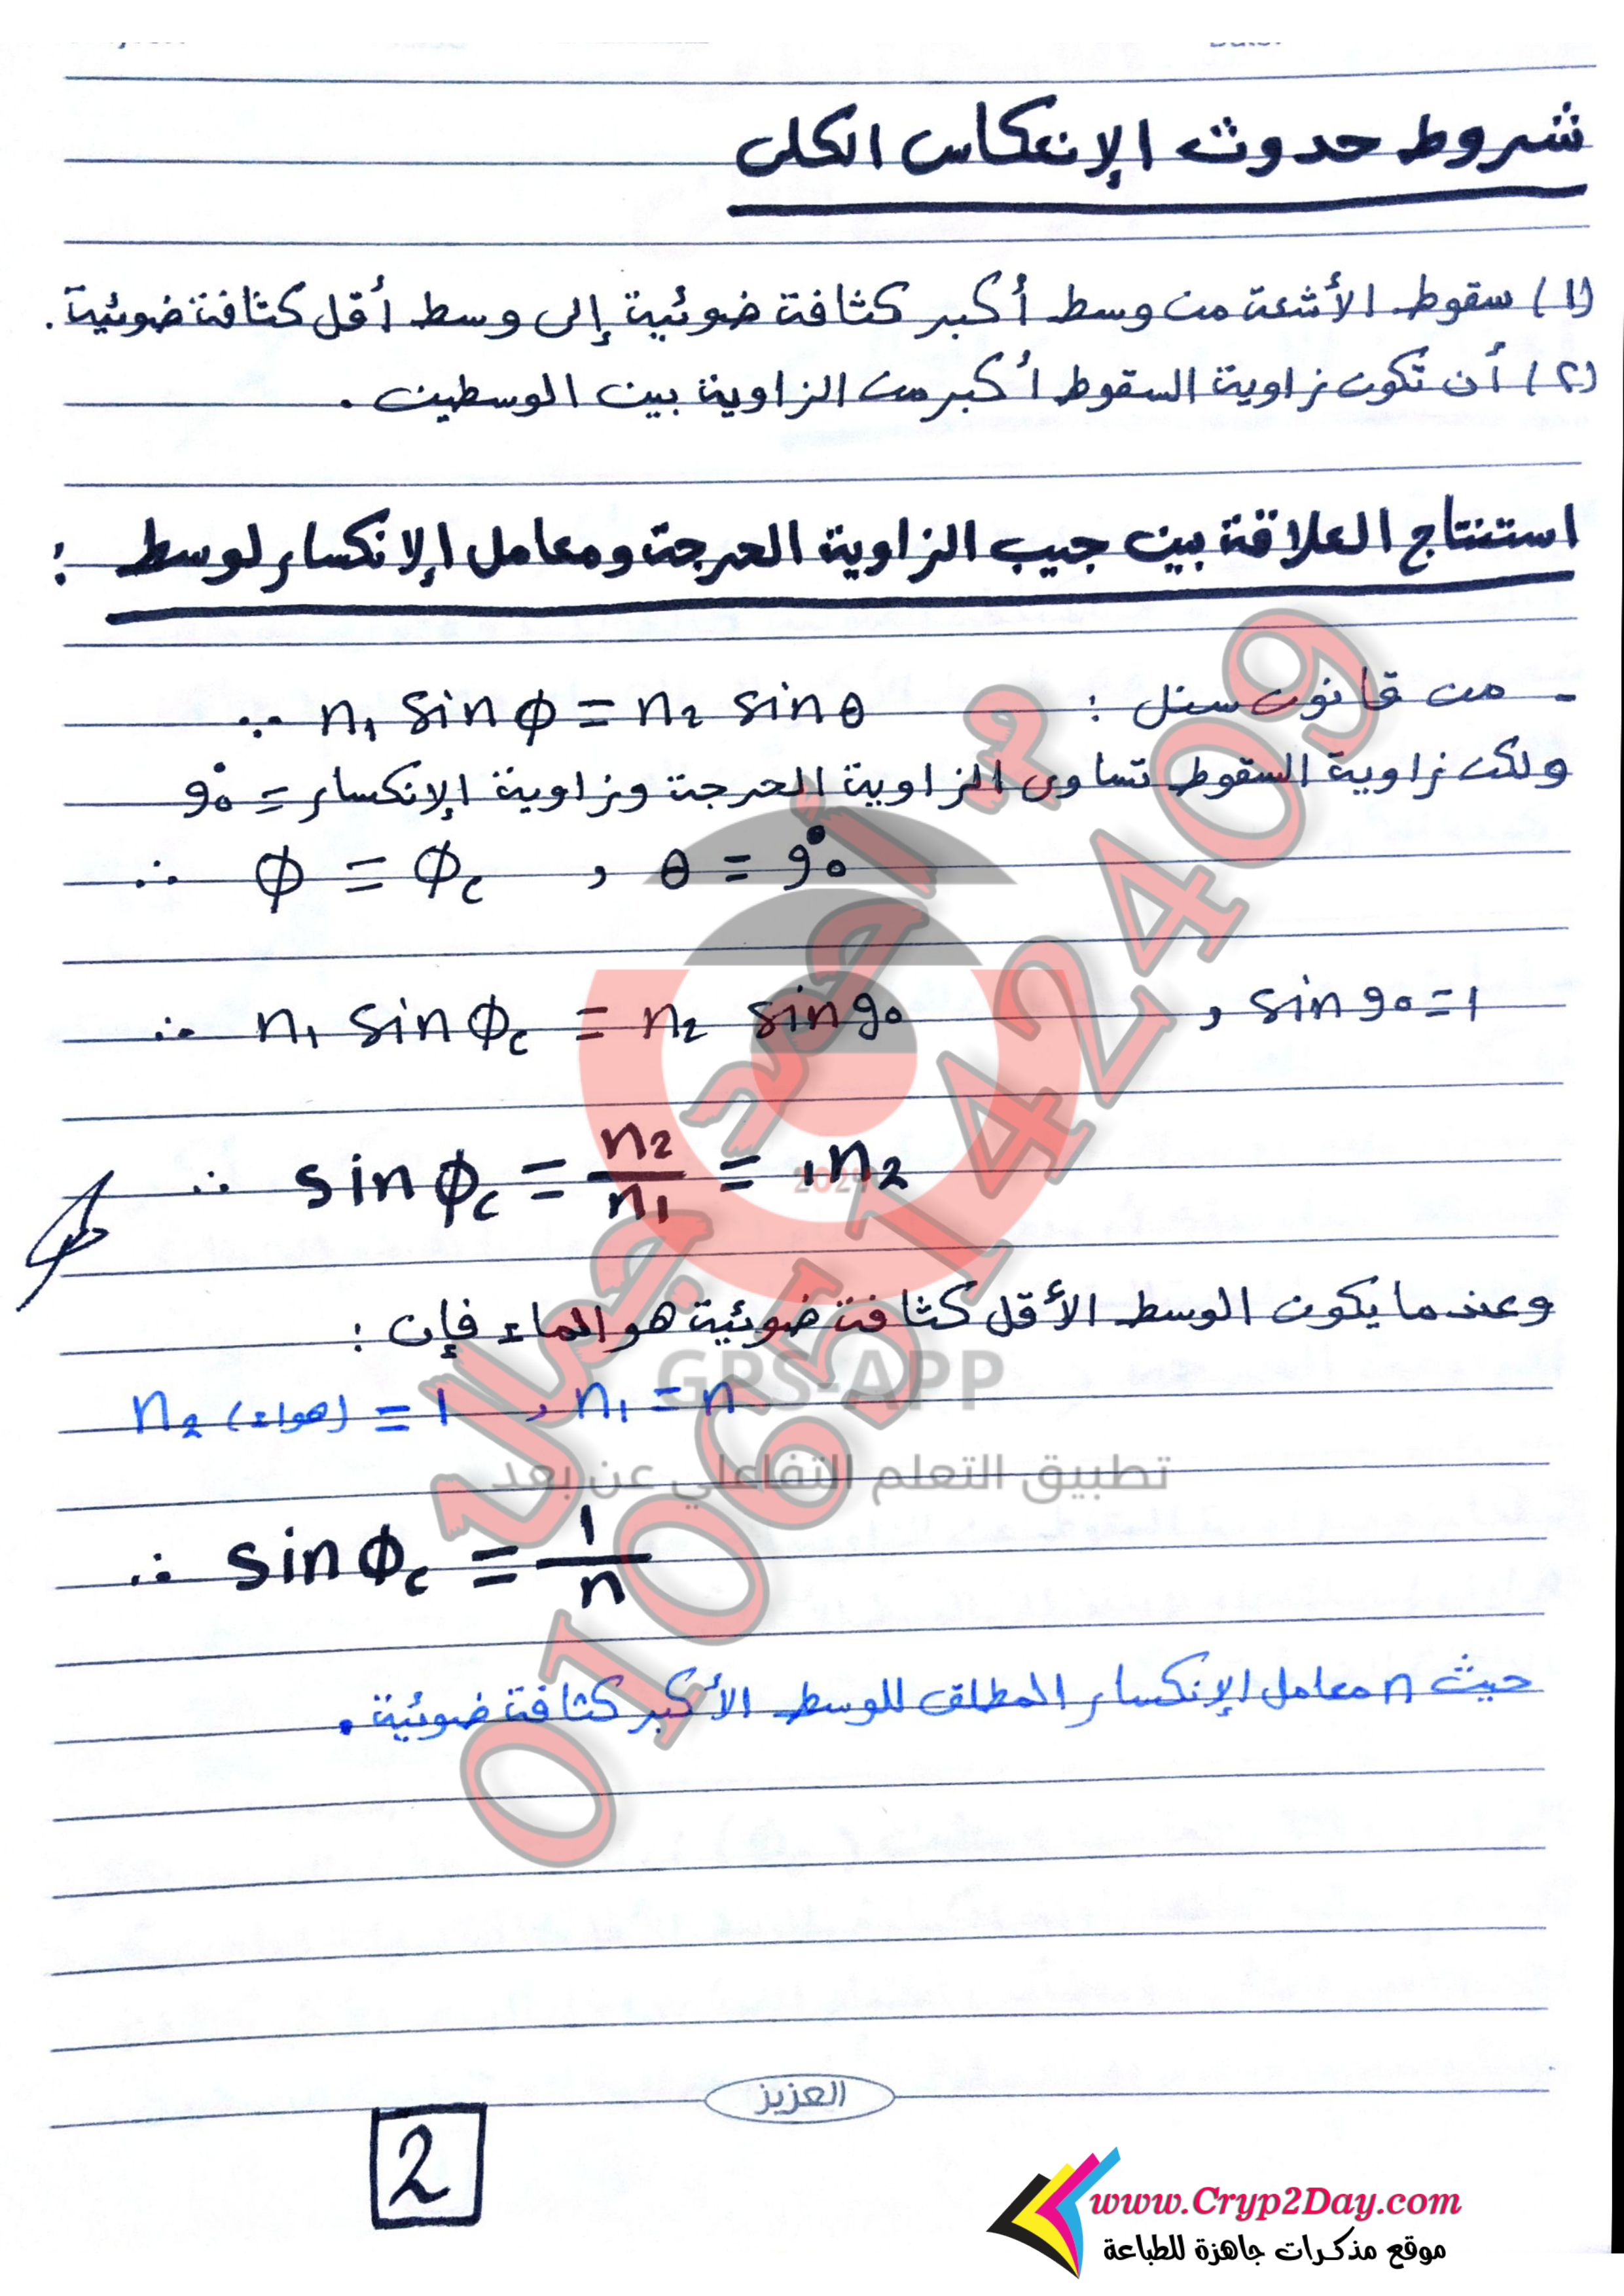 شروط حدوث الإنعكاس الكلى
(١) سقوط الأشعة من وسط أكبر كثافة ضوئية إلى وسط أقل كثافة ضوئية.
(٢) أن تكون زاوية السقوط أكبر من الزاوية بين الوسطين.
استنتاج العلاقة بين جيب الزاوية الحرجة ومعامل الإنكسار لوسط :
- من قانون سنل : ∵ n₁ sin ϕ = n₂ sin θ
ولكن زاوية السقوط تساوى الزاوية الحرجة وزاوية الإنكسار = 90°
∴ ϕ = ϕc , θ = 90°
∴ n₁ sin ϕc = n₂ sin 90 , sin 90 = 1
∴ sin ϕc = n₂/n₁ = ₁n₂
وعندما يكون الوسط الأقل كثافة ضوئية هو الماء فإن :
n₂ (هواء) = 1 , n₁ = n
∴ sin ϕc = 1/n
حيث n معامل الإنكسار المطلق للوسط الأكبر كثافة ضوئية.
م أحمد جمال
01065142409
2024
GPS-APP
تطبيق التعلم التفاعلي عن بعد
العزيز
2
www.Cryp2Day.com
موقع مذكرات جاهزة للطباعة